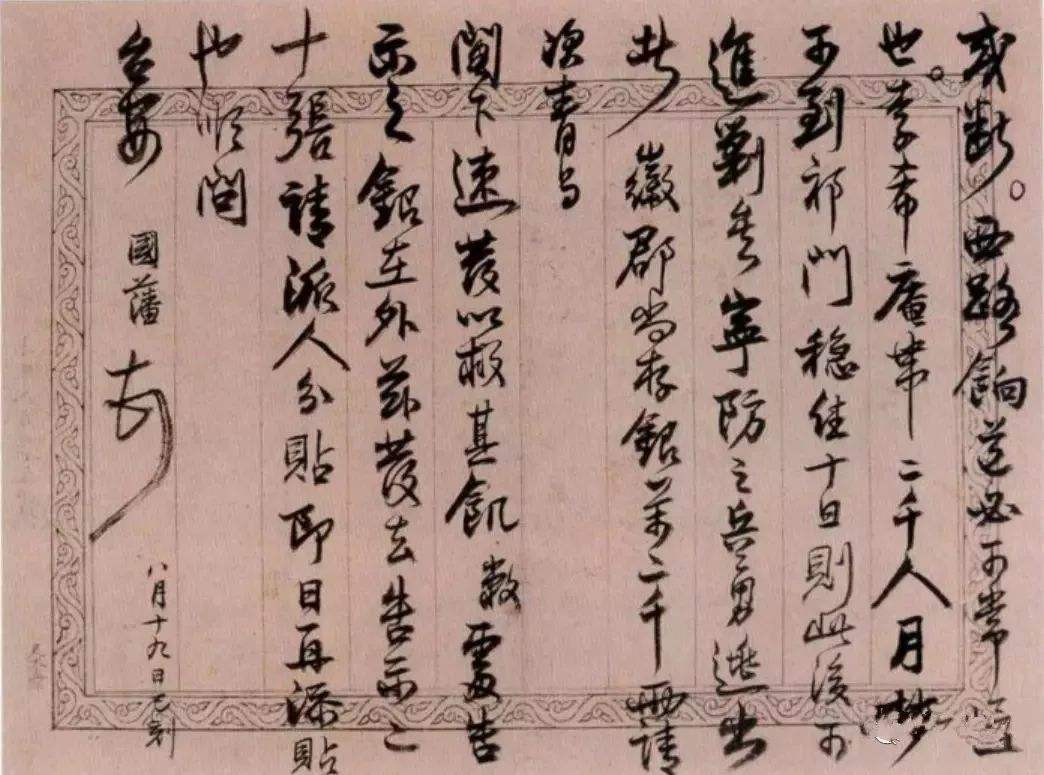 或斷。西路餉道必可常通
也。李希庵帶二千人月杪
可到祁門穩住十日則此後可
進剿矣寧防之兵勇逃出
此徽郡尚存銀萬二千兩請
次青與
閣下速發以救其飢數處告
示之銀在外茲發去告示二
十張請派人分貼即日再添貼
也順問
台安 國藩 頓
八月十九日巳刻